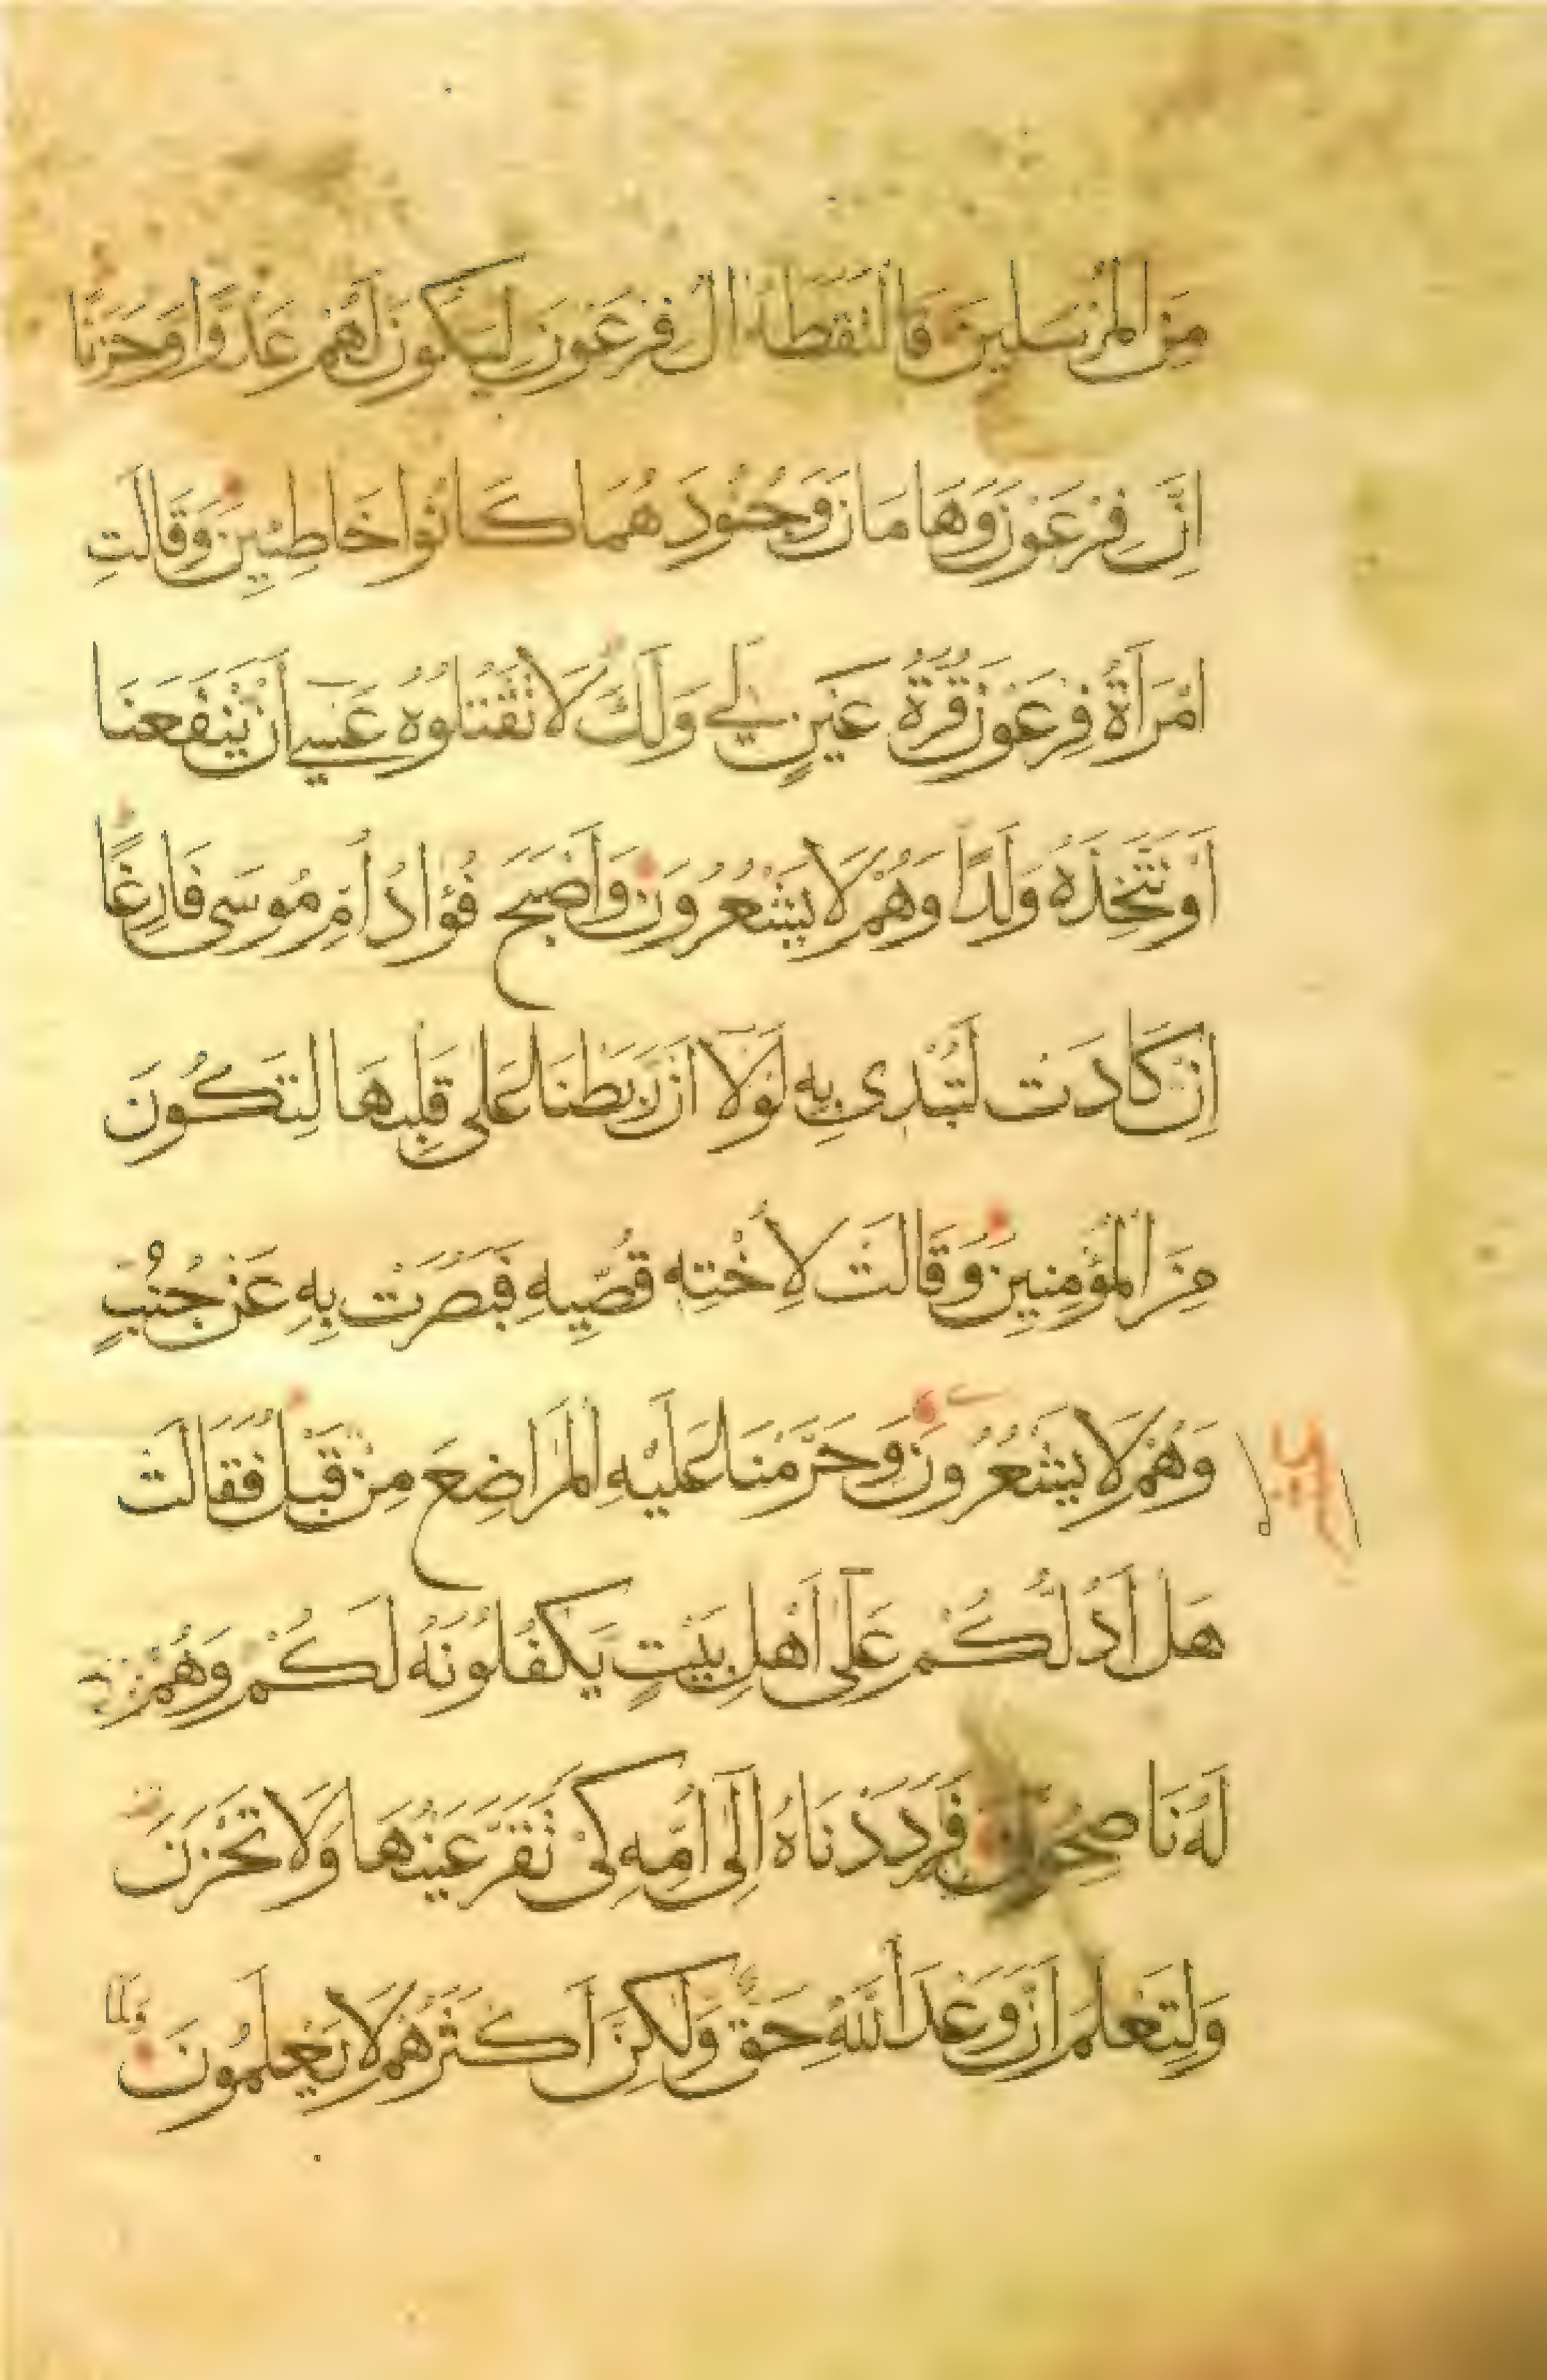 مِنَ الْمُرْسَلِينَ فَالْتَقَطَهُ اٰلُ فِرْعَوْنَ لِيَكُونَ لَهُمْ عَدُوًّا وَحَزَنًا
اِنَّ فِرْعَوْنَ وَهَامَانَ وَجُنُودَهُمَا كَانُوا خَاطِئِينَ وَقَالَتِ
امْرَأَةُ فِرْعَوْنَ قُرَّةُ عَيْنٍ لِي وَلَكَ لَا تَقْتُلُوهُ عَسَى أَنْ يَنْفَعَنَا
أَوْ نَتَّخِذَهُ وَلَدًا وَهُمْ لَا يَشْعُرُونَ وَأَصْبَحَ فُؤَادُ أُمِّ مُوسَى فَارِغًا
اِنْ كَادَتْ لَتُبْدِى بِهِ لَوْلَا أَنْ رَبَطْنَا عَلَى قَلْبِهَا لِتَكُونَ
مِنَ الْمُؤْمِنِينَ وَقَالَتْ لِأُخْتِهِ قُصِّيهِ فَبَصُرَتْ بِهِ عَنْ جُنُبٍ
وَهُمْ لَا يَشْعُرُونَ وَحَرَّمْنَا عَلَيْهِ الْمَرَاضِعَ مِنْ قَبْلُ فَقَالَتْ
هَلْ أَدُلُّكُمْ عَلَى أَهْلِ بَيْتٍ يَكْفُلُونَهُ لَكُمْ وَهُمْ
لَهُ نَاصِحُونَ فَرَدَدْنَاهُ اِلَى أُمِّهِ كَىْ تَقَرَّ عَيْنُهَا وَلَا تَحْزَنَ
وَلِتَعْلَمَ أَنَّ وَعْدَ اللّٰهِ حَقٌّ وَلٰكِنَّ أَكْثَرَهُمْ لَا يَعْلَمُونَ
وَلَمَّا